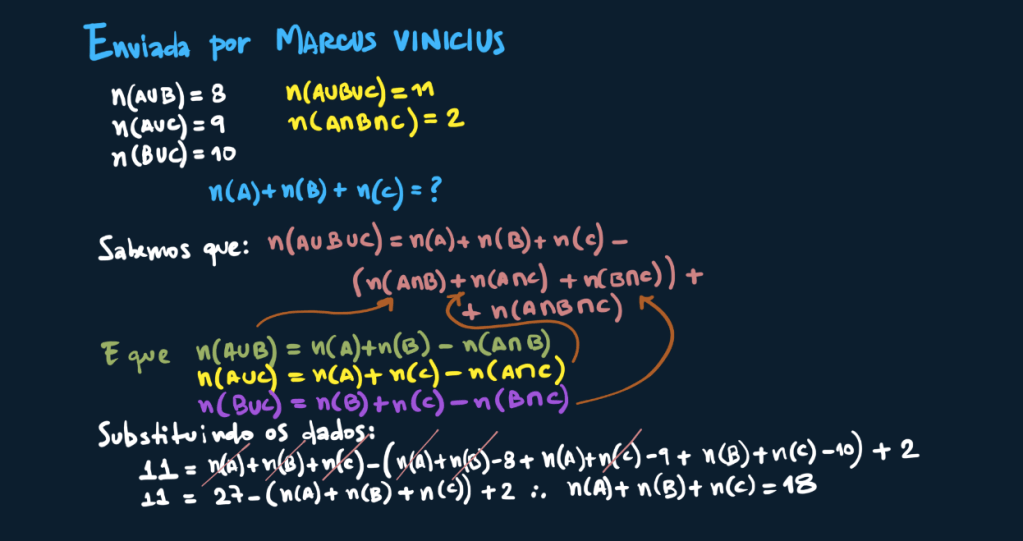 Enviada por MARCUS VINICIUS
n(A∪B) = 8 n(A∪B∪C) = 11
n(A∪C) = 9 n(A∩B∩C) = 2
n(B∪C) = 10
n(A) + n(B) + n(C) = ?
Sabemos que: n(A∪B∪C) = n(A) + n(B) + n(C) −
(n(A∩B) + n(A∩C) + n(B∩C)) +
+ n(A∩B∩C)
E que n(A∪B) = n(A) + n(B) − n(A∩B)
n(A∪C) = n(A) + n(C) − n(A∩C)
n(B∪C) = n(B) + n(C) − n(B∩C)
Substituindo os dados:
11 = n(A) + n(B) + n(C) − (n(A) + n(B) − 8 + n(A) + n(C) − 9 + n(B) + n(C) − 10) + 2
11 = 27 − (n(A) + n(B) + n(C)) + 2 ∴ n(A) + n(B) + n(C) = 18